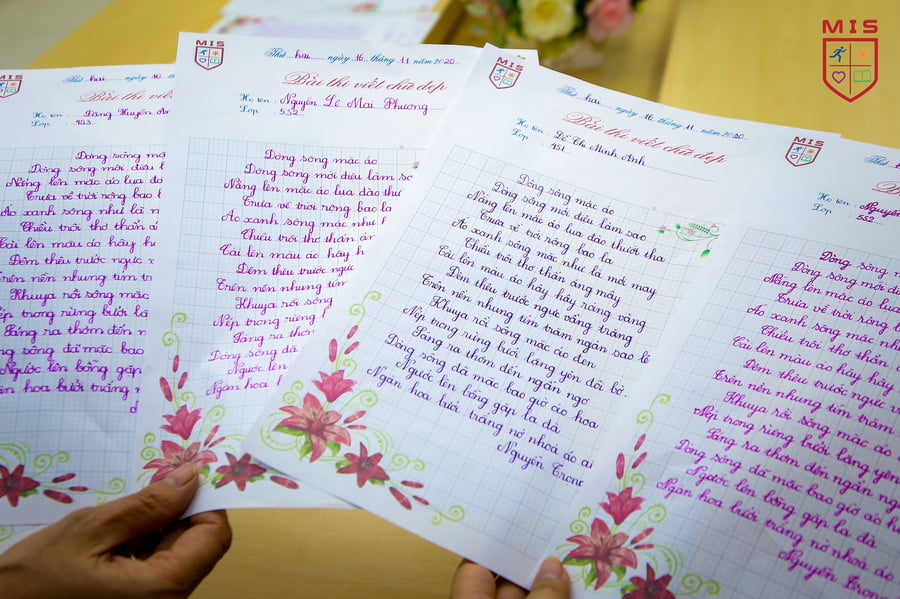 MIS
MIS
Thứ hai ngày 16 tháng 11 năm 2020
Bài thi viết chữ đẹp
Lớp : 4S3
Dòng sông mới điệu
Nắng lên mặc áo lụa đào
Trưa về trời rộng bao
Áo xanh sông như là
Chiều trôi thơ thẩn
Cài lên màu áo hây
Đêm thêu trước ngực
Trên nền nhung tím
Khuya rồi sông mặc
Nép trong rừng bưởi
Sáng ra thơm đến
sông đã mặc bao
Ngước lên bỗng gặp
Ngàn hoa bưởi trắng
MIS
Thứ hai ngày 16 tháng 11 năm 2020
Bài thi viết chữ đẹp
Họ tên : Nguyễn Lê Mai Phương
Lớp : 5S2
Dòng sông mặc áo
Dòng sông mới điệu làm
Nắng lên mặc áo lụa đào
Trưa về trời rộng bao la
Áo xanh sông mặc như
Chiều trôi thơ thẩn
Cài lên màu áo hây
Đêm thêu trước ngực
Trên nền nhung tím
Khuya rồi sông
Nép trong rừng
Sáng ra thơm
Dòng sông đã
Ngước lên
Ngàn hoa
MIS
Thứ hai ngày 16 tháng 11 năm 2020
Bài thi viết chữ đẹp
Họ tên : Đỗ Thị Minh Anh
Lớp : 4S1
Dòng sông mặc áo
Dòng sông mới điệu làm sao
Nắng lên mặc áo lụa đào thướt tha
Trưa về trời rộng bao la
Áo xanh sông mặc như là mới may
Chiều trôi thơ thẩn áng mây
Cài lên màu áo hây hây ráng vàng
Đêm thêu trước ngực vầng trăng
Trên nền nhung tím trăm ngàn sao lên
Khuya rồi sông mặc áo đen
Nép trong rừng bưởi lặng yên đôi bờ
Sáng ra thơm đến ngẩn ngơ
Dòng sông đã mặc bao giờ áo hoa
Ngước lên bỗng gặp la đà
Ngàn hoa bưởi trắng nở nhoà áo ai
Nguyễn Trọng
MIS
Thứ hai
Họ tên : Nguyễn
Lớp : 5S2
Dòng sông
Dòng sông mới điệu
Nắng lên mặc áo lụa
Trưa về trời rộng
Áo xanh sông mặc như
Chiều trôi thơ thẩn
Cài lên màu áo hây hây
Đêm thêu trước ngực
Trên nền nhung tím trăm
Khuya rồi sông mặc áo
Nép trong rừng bưởi lặng yên
Sáng ra thơm đến ngẩn
Dòng sông đã mặc bao giờ áo
Ngước lên bỗng gặp la đà
Ngàn hoa bưởi trắng nở nhoà áo
Nguyễn Trọng